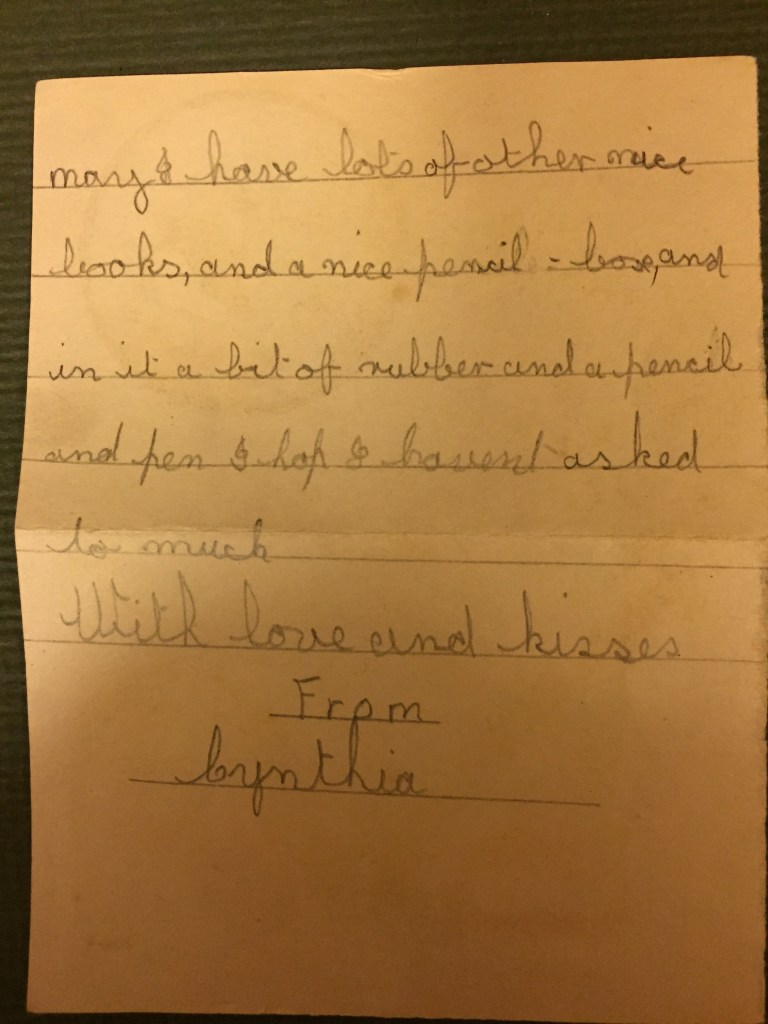 may I have lots of other nice
books, and a nice pencil - box, and
in it a bit of rubber and a pencil
and pen I hop I havent asked
to much
With love and kisses
From
Cynthia